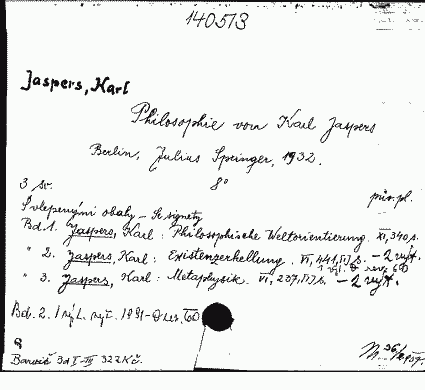 140513
Jaspers, Karl
Philosophie von Karl Jaspers
Berlin, Julius Springer, 1932.
3 sv. 8° pův. pl.
S vlepenými obaly – Se signety
Bd 1. Jaspers, Karl: Philosophische Weltorientierung. XI, 340 s.
" 2. Jaspers, Karl: Existenzerhellung. VI, 441, [1] s. – 2 výt.
" 3. Jaspers, Karl: Metaphysik. VI, 237, [1] s. – 2 výt.
Bd. 2.
3 d I-III 322 Kč.